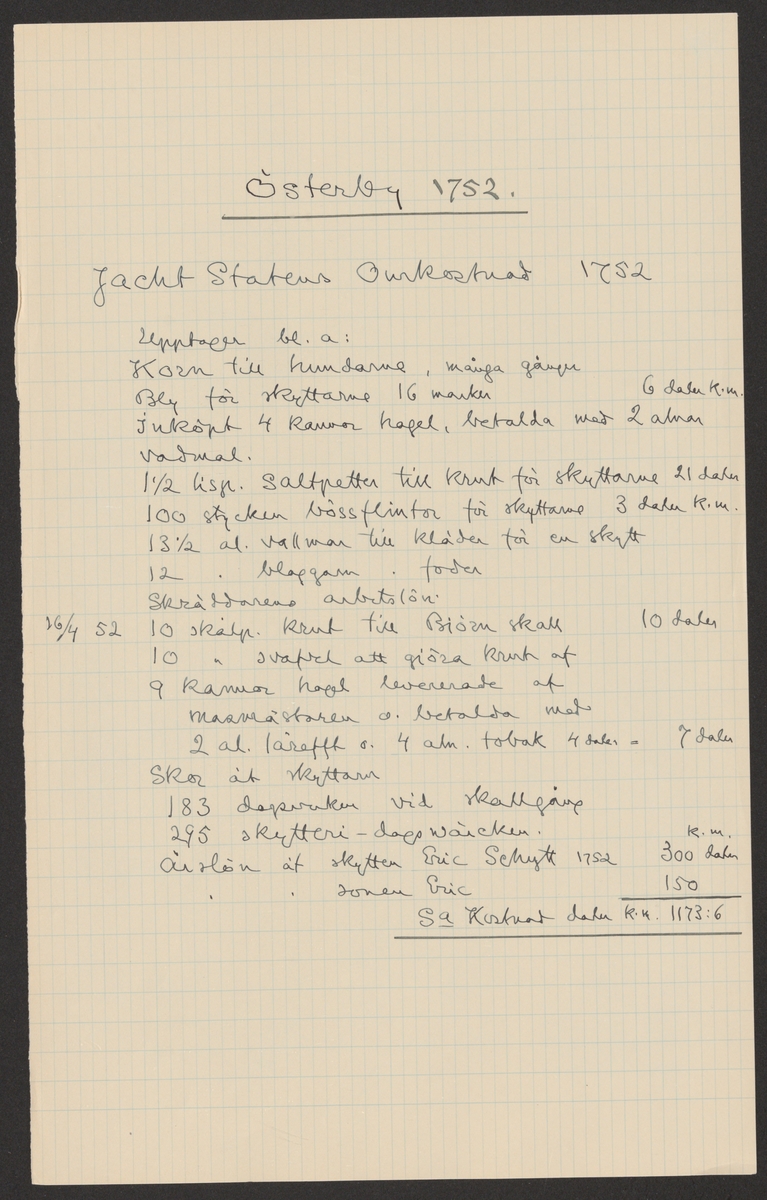 Österby 1752.
Jacht Statens Omkostnad 1752
Upptager bl. a:
Korn till hundarne, många gånger
Bly för skyttarne 16 marker 6 daler K.m.
inköpt 4 kannor hagel, betalda med 2 alnar
vadmal.
1 1/2 lisp. Saltpetter till krut för skyttarne 21 daler
100 stycken bössflintor för skyttarne 3 daler K.m.
13 1/2 al. vallmar till kläder för en skytt
12 " blaggarn " foder
Skräddarens arbetslön.
26/4 52 10 skålp. krut till Biörn skall 10 daler
10 " svafvel att giöra krut af
9 kannor hagel levererade af
masmästaren o. betalda med
2 al. lärefft o. 4 aln. tobak 4 daler = 7 daler
Skor åt skyttarn
183 dagsverken vid skallgång
295 skytteri-dagswärcken. K.m.
Årslön åt skytten Eric Schytt 1752 300 daler
" " sonen Eric 150
Sa Kostnad daler K.m. 1173:6